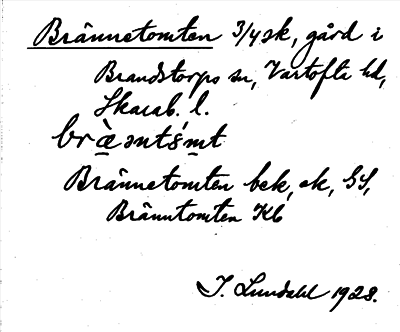 Brännetomten 3/4 sk, gård i
Brandstorps sn, Vartofta hd,
Skarab. l.
bræ̀ntśmt
Brännetomten bek, ek, GS,
Bränntomten Kb
I. Lundahl 1928.